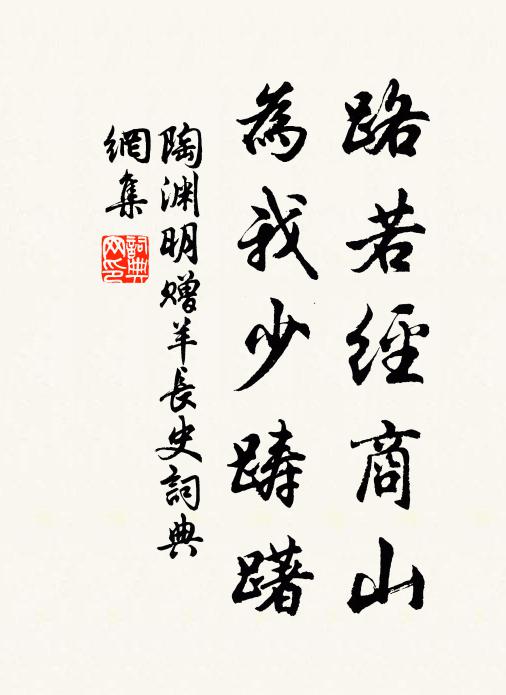 路若經商山
為我少踌躇
陶渊明赠羊長史詞典
網集
詞典
网印